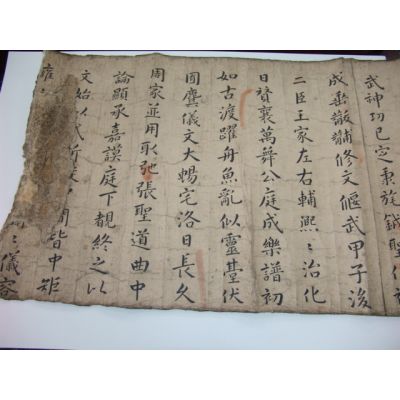 武神功已定秉旄鉞聖作
成垂黻黼修文偃武甲子後
二臣王家左右輔熙〻治化
日贊襄萬舞公庭成樂譜初
如古渡躍舟魚亂似靈臺伏
國龔儀文大暢宅洛日長久
周家並用取弛張聖道曲中
論顯承嘉謨庭下覩終之以
文始以武
周皆中矩
雍
〻儀容